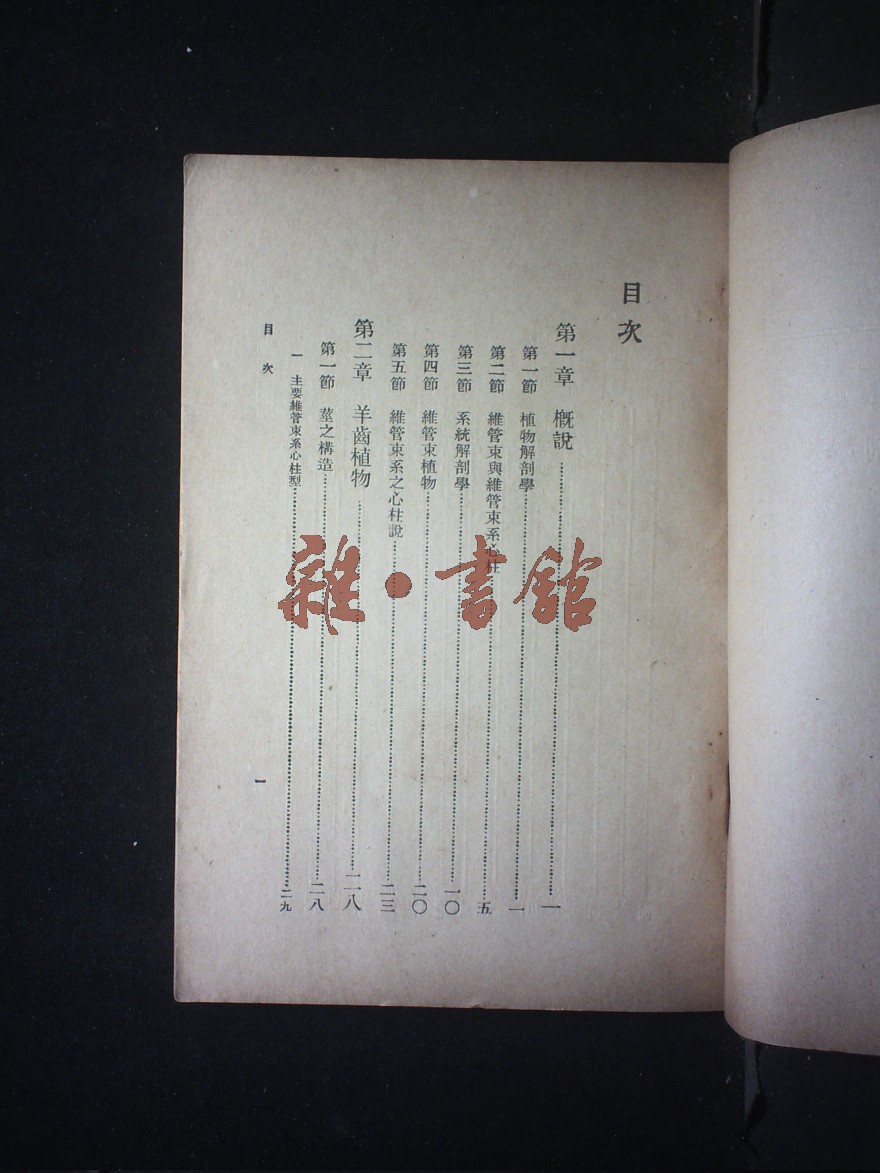 目次
第一章　概說……一
第一節　植物解剖學……一
第二節　維管束與維管束系心柱……五
第三節　系統解剖學……一〇
第四節　維管束植物……二〇
第五節　維管束系之心柱說……二三
第二章　羊齒植物……二八
第一節　莖之構造……二八
一　主要維管束系心柱型……二九
目次
一
雜·書館